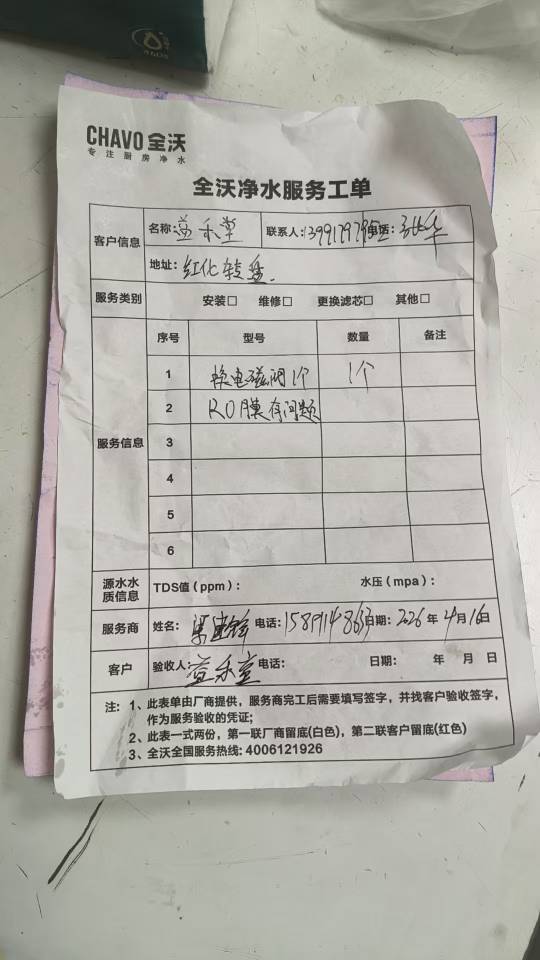 CHAVO 全沃
专注厨房净水
全沃净水服务工单
客户信息 名称: 益禾堂 联系人: 电话:
地址: 红化转盘
服务类别 安装□ 维修□ 更换滤芯□ 其他□
服务信息 序号 型号 数量 备注
1 换电磁阀1个 1个
2 RO膜有问题
3
4
5
6
源水水质信息 TDS值(ppm): 水压(mpa):
服务商 姓名: 电话: 日期: 2026年4月16日
客户 验收人: 益禾堂 电话: 日期: 年 月 日
注: 1、此表单由厂商提供，服务商完工后需要填写签字，并找客户验收签字，
作为服务验收的凭证;
2、此表一式两份，第一联厂商留底(白色)，第二联客户留底(红色)
3、全沃全国服务热线: 4006121926